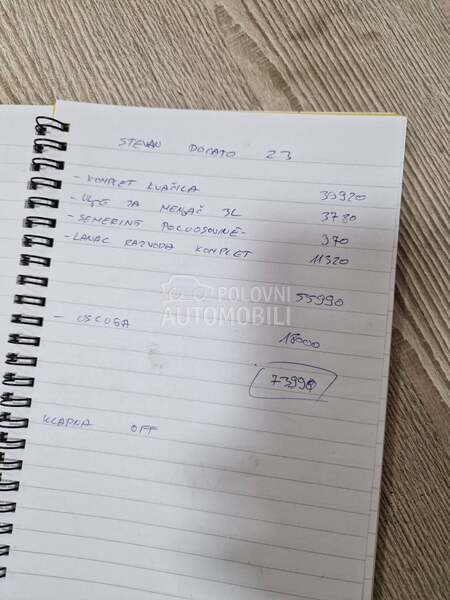 STEVAN DUCATO 2.3
- KOMPLET KVAČILA 39920
- ULJE ZA MENJAČ 3L 3780
- SEMERING POLUOSOVINE- 970
- LANAC RAZVODA KOMPLET 11320
55990
POLOVNI
AUTOMOBILI
- USLUGA 18000
73990
KLAPNA OFF